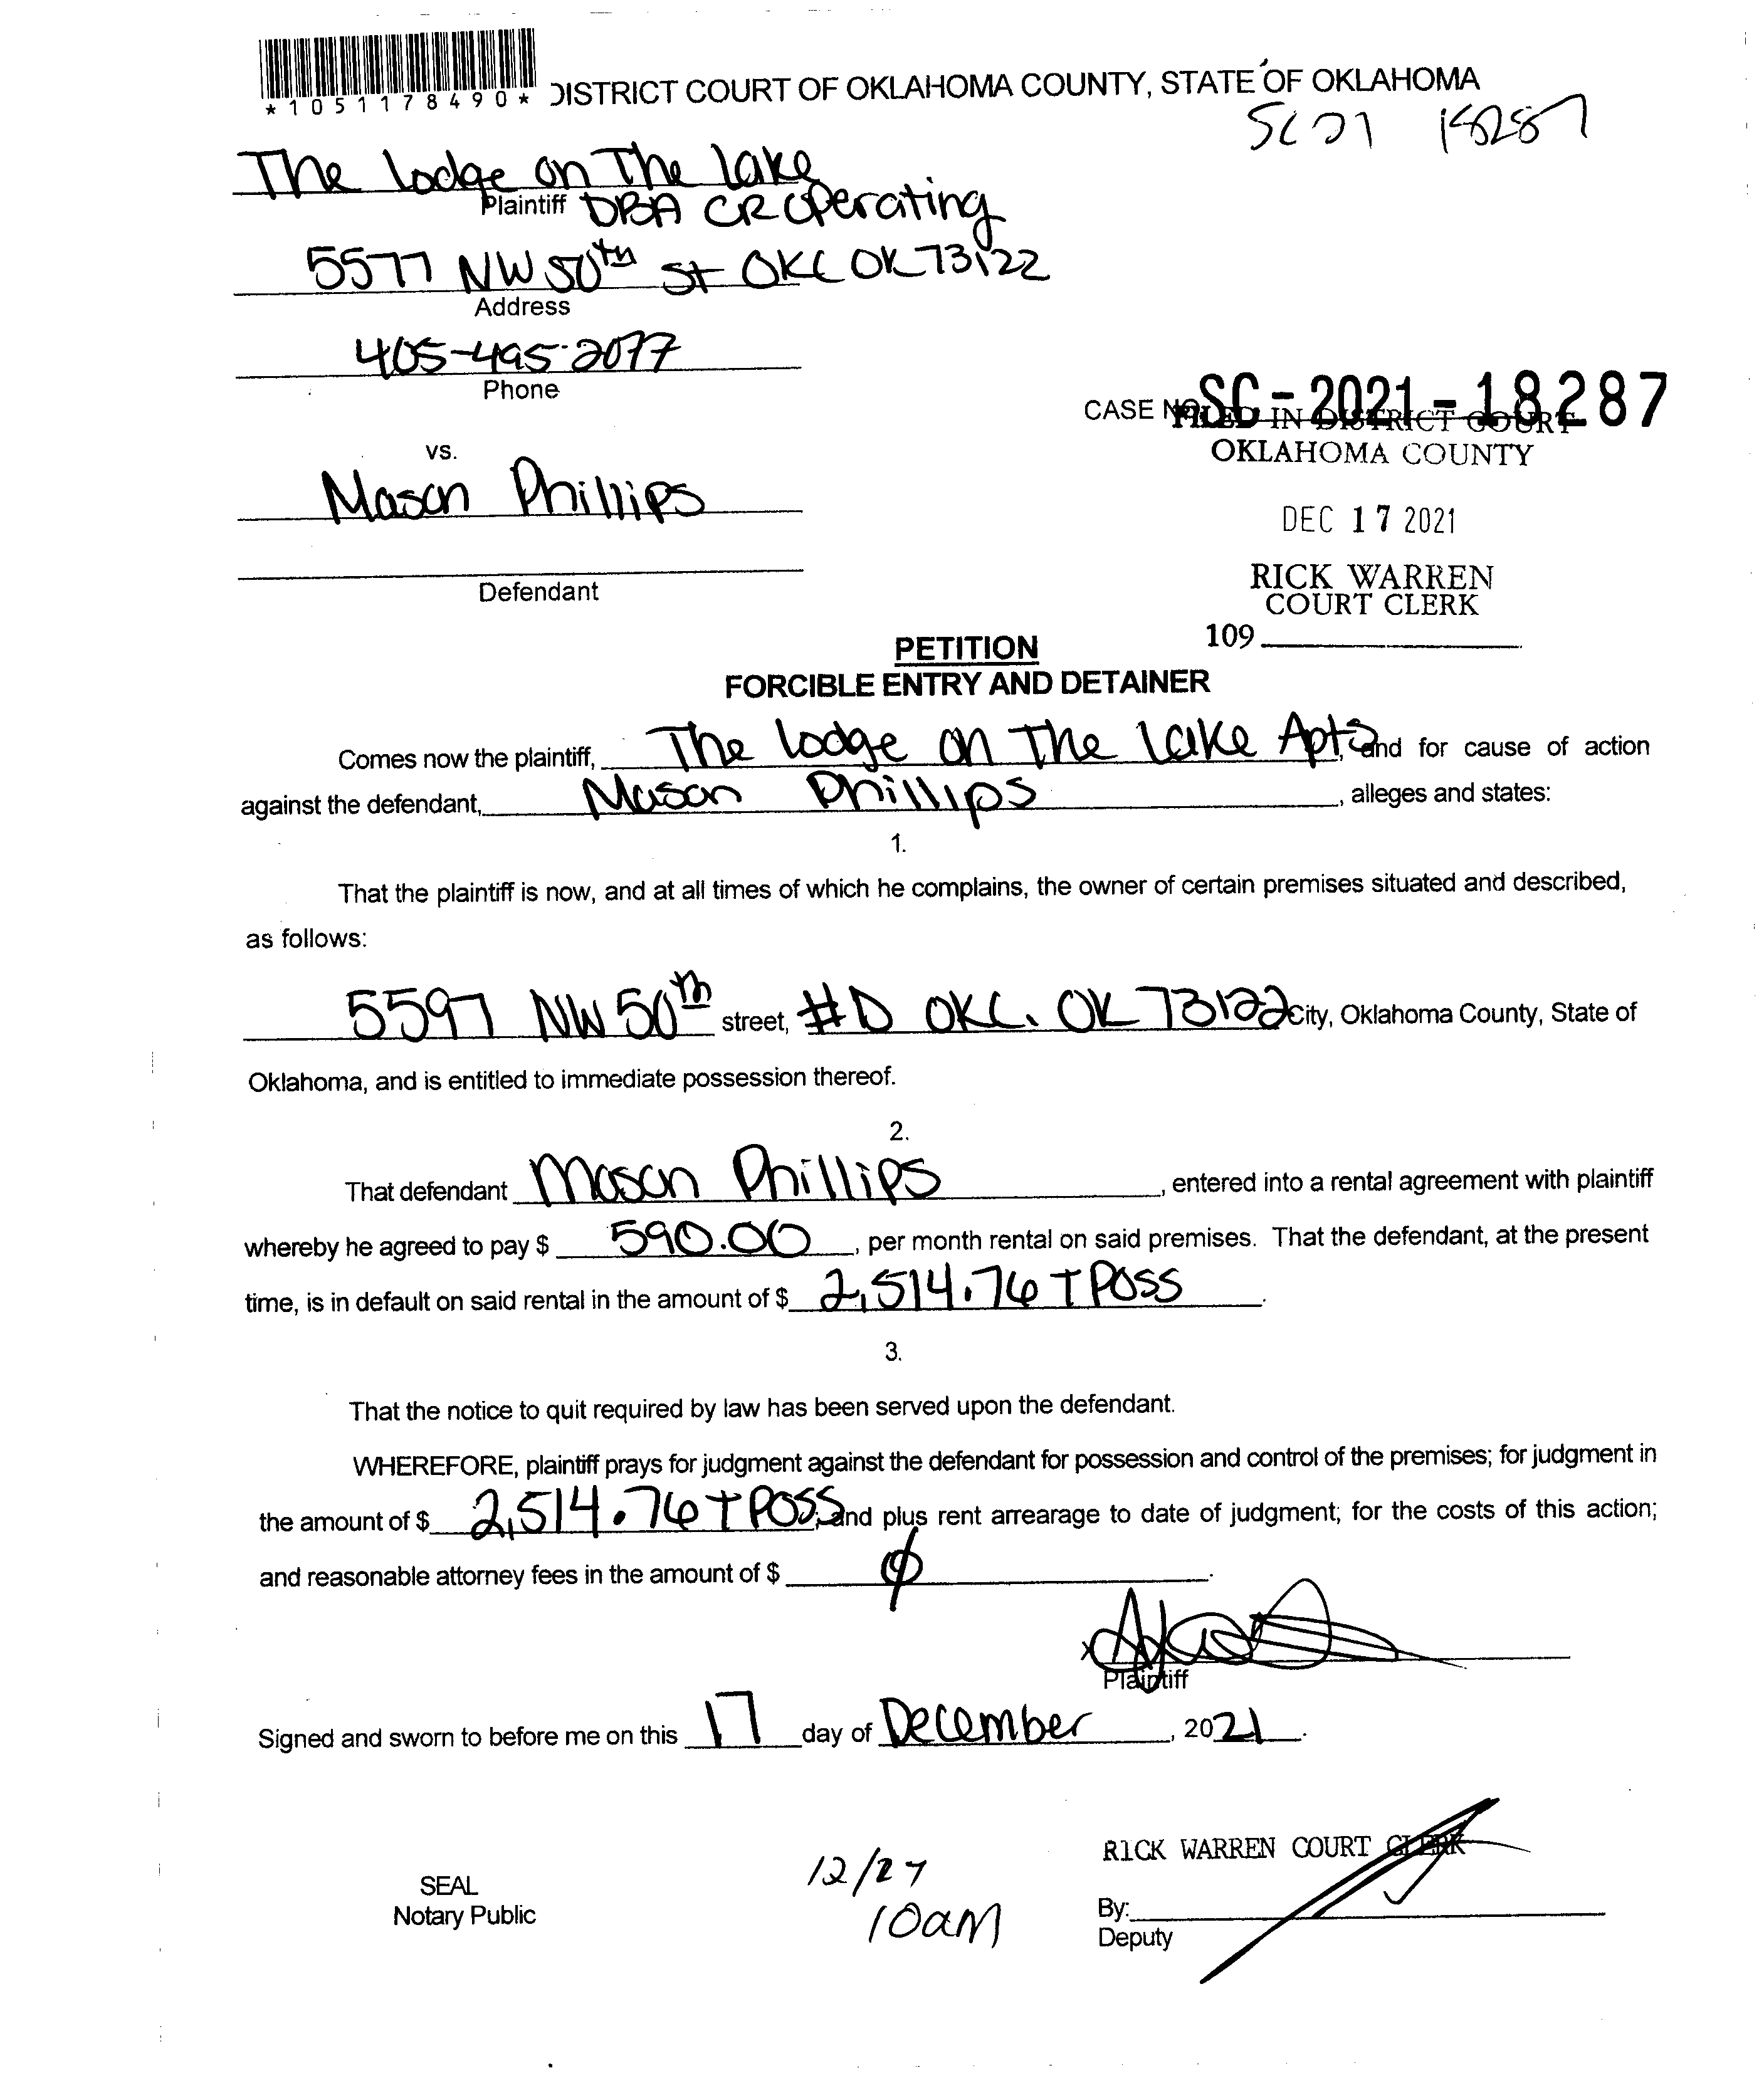 *1051178490* DISTRICT COURT OF OKLAHOMA COUNTY, STATE OF OKLAHOMA
SC21 18287
The lodge on The lake
Plaintiff DBA CR Operating
5577 NW 50th St OKC OK 73122
Address
405-495-2077
Phone
CASE NO. SC-2021-18287
FILED IN DISTRICT COURT
OKLAHOMA COUNTY
vs.
Mason Phillips
DEC 17 2021
Defendant
RICK WARREN
COURT CLERK
109
PETITION
FORCIBLE ENTRY AND DETAINER
Comes now the plaintiff, The lodge on The lake Apts, and for cause of action
against the defendant, Mason Phillips, alleges and states:
1.
That the plaintiff is now, and at all times of which he complains, the owner of certain premises situated and described,
as follows:
5597 NW 50th street, #D OKC. OK 73122 City, Oklahoma County, State of
Oklahoma, and is entitled to immediate possession thereof.
2.
That defendant Mason Phillips, entered into a rental agreement with plaintiff
whereby he agreed to pay $ 590.00, per month rental on said premises. That the defendant, at the present
time, is in default on said rental in the amount of $ 2,514.76 + POSS.
3.
That the notice to quit required by law has been served upon the defendant.
WHEREFORE, plaintiff prays for judgment against the defendant for possession and control of the premises; for judgment in
the amount of $ 2,514.76 + POSS; and plus rent arrearage to date of judgment; for the costs of this action;
and reasonable attorney fees in the amount of $ ϕ.
x
Plaintiff
Signed and sworn to before me on this 17 day of December, 2021.
RICK WARREN COURT CLERK
SEAL
Notary Public
12/27
10am
By:
Deputy